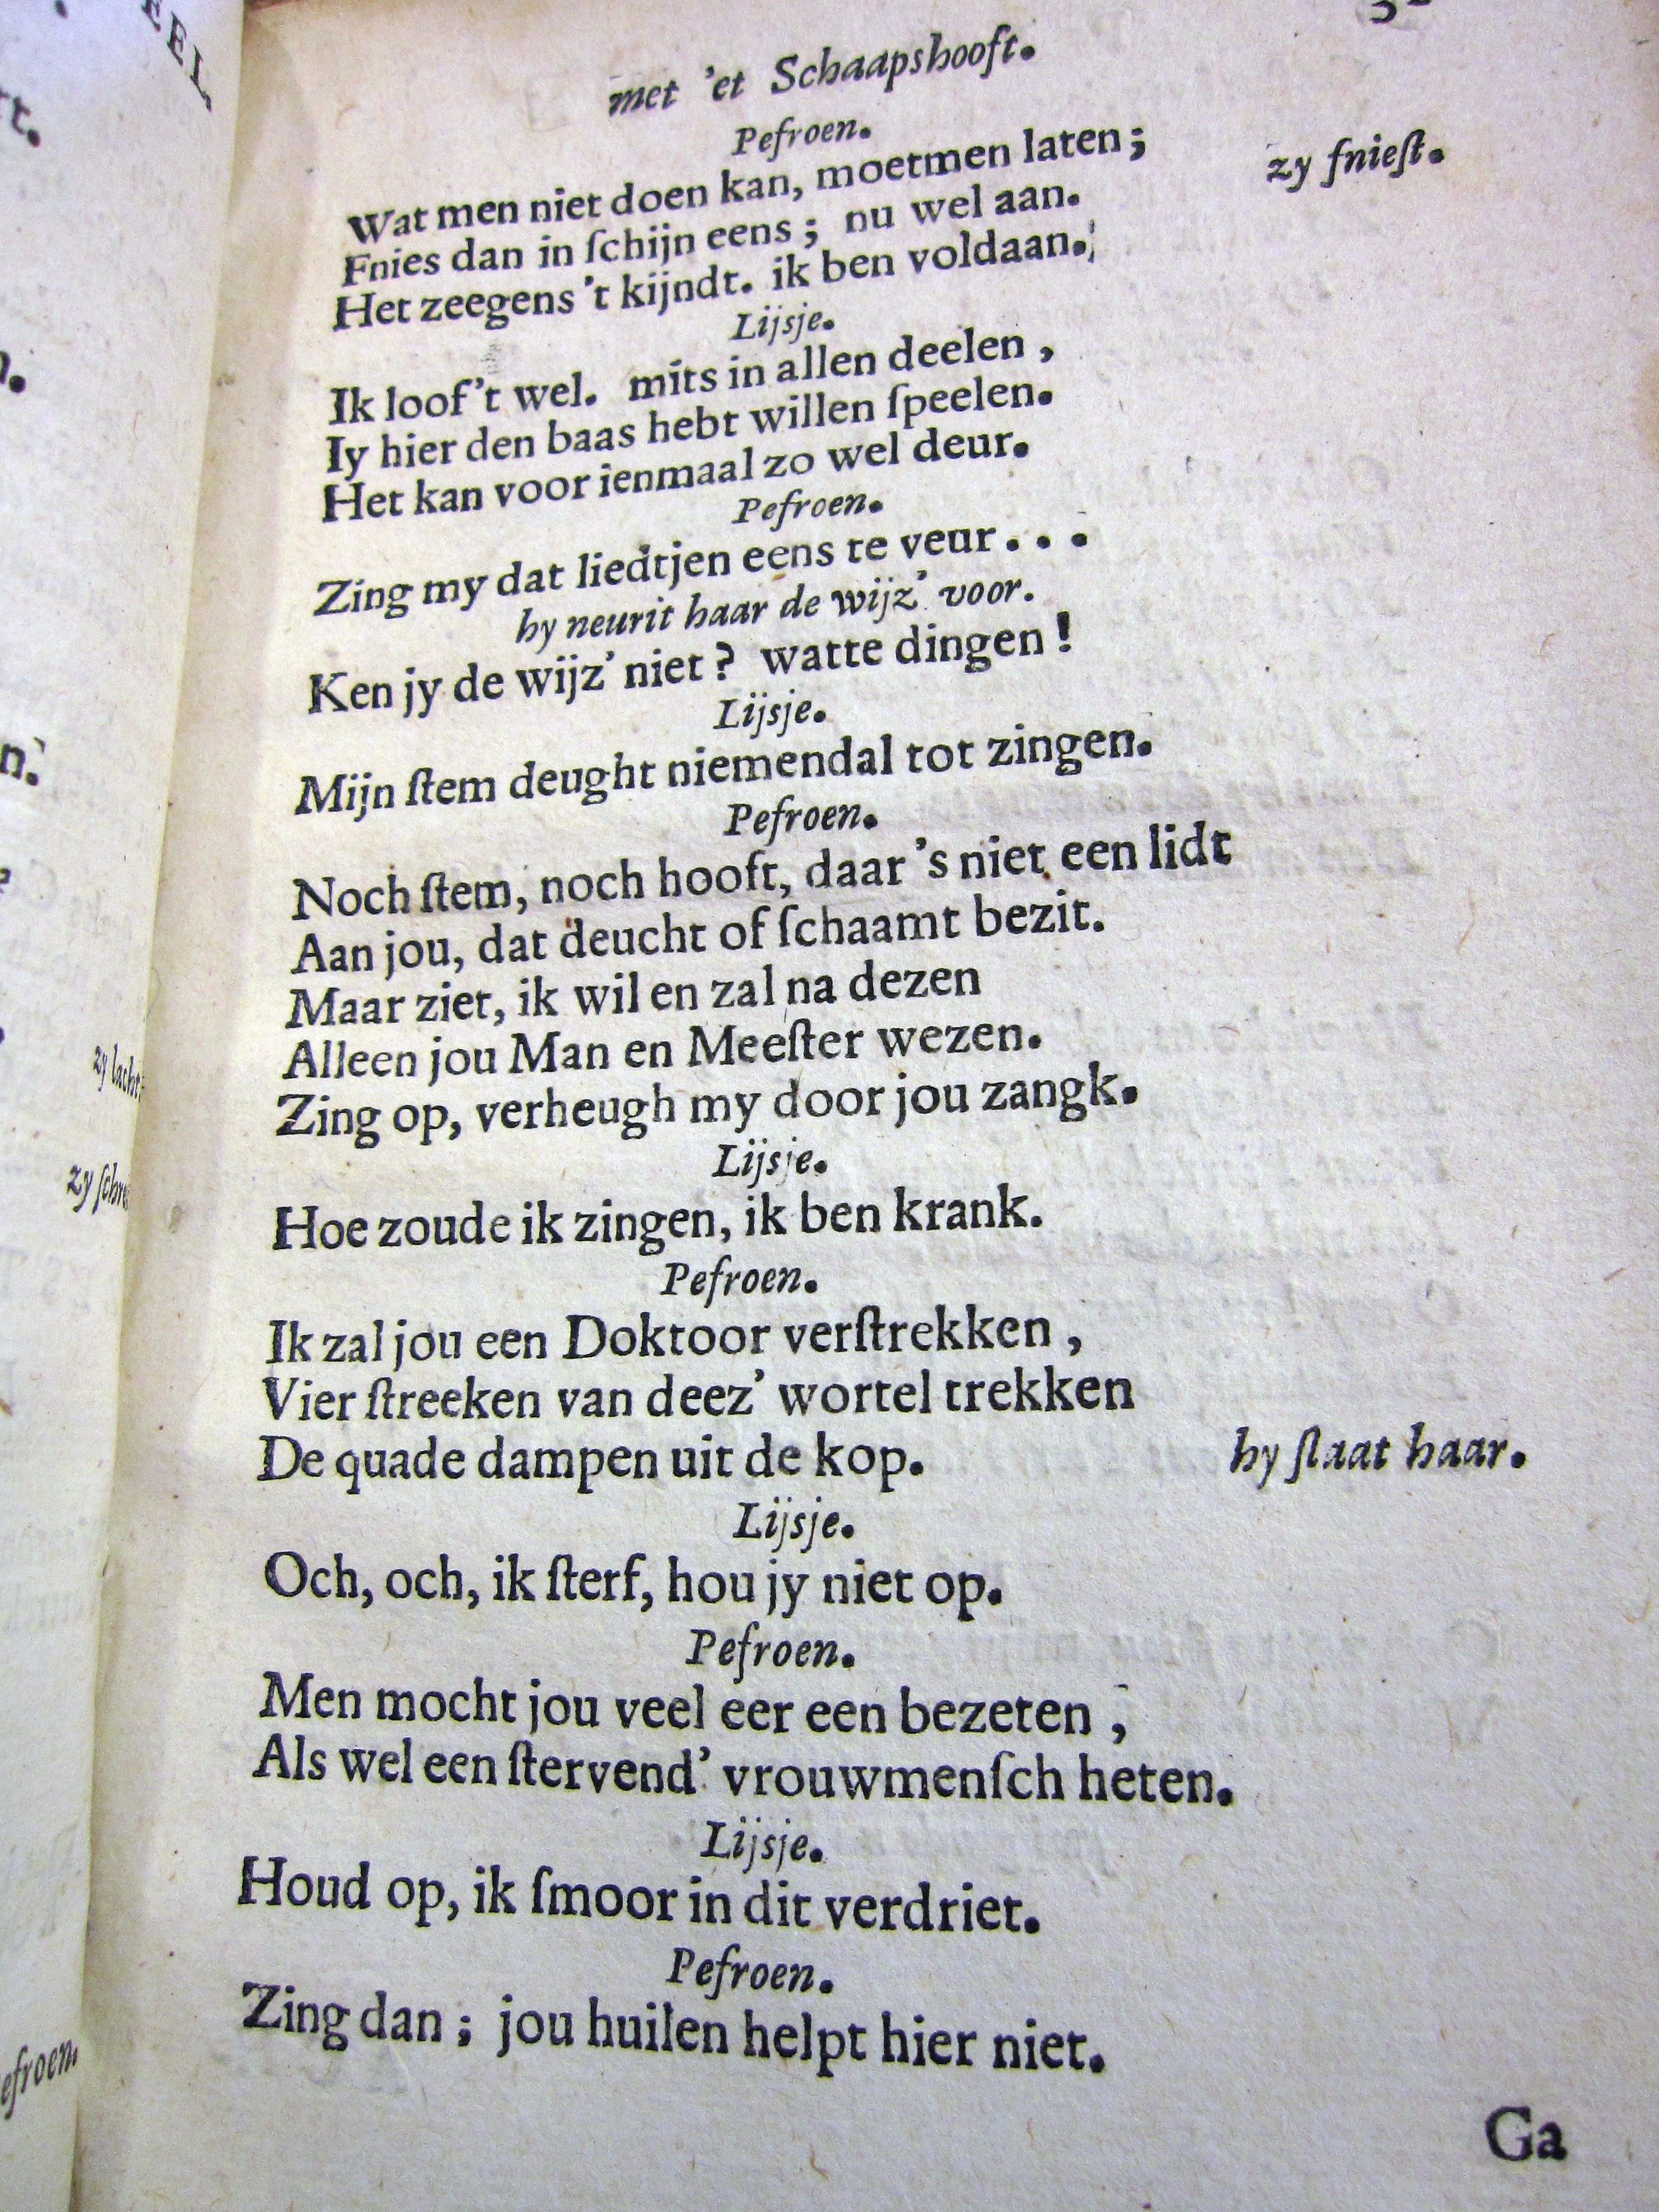 met 'et Schaapshooft.
Pefroen.
Wat men niet doen kan, moetmen laten;
zy fnieſt.
Fnies dan in ſchijn eens; nu wel aan.
Het zeegens 't kijndt. ik ben voldaan.
Lijsje.
Ik loof 't wel. mits in allen deelen,
Iy hier den baas hebt willen ſpeelen.
Het kan voor ienmaal zo wel deur.
Pefroen.
Zing my dat liedtjen eens te veur...
hy neurit haar de wijz' voor.
Ken jy de wijz' niet? watte dingen!
Lijsje.
Mijn ſtem deught niemendal tot zingen.
Pefroen.
Noch ſtem, noch hooft, daar 's niet een lidt
Aan jou, dat deucht of ſchaamt bezit.
Maar ziet, ik wil en zal na dezen
Alleen jou Man en Meeſter wezen.
Zing op, verheugh my door jou zangk.
Lijsje.
Hoe zoude ik zingen, ik ben krank.
Pefroen.
Ik zal jou een Doktoor verſtrekken,
Vier ſtreeken van deez' wortel trekken
De quade dampen uit de kop.
hy ſlaat haar.
Lijsje.
Och, och, ik ſterf, hou jy niet op.
Pefroen.
Men mocht jou veel eer een bezeten,
Als wel een ſtervend' vrouwmenſch heten.
Lijsje.
Houd op, ik ſmoor in dit verdriet.
Pefroen.
Zing dan; jou huilen helpt hier niet.
Ga
zy lacht.